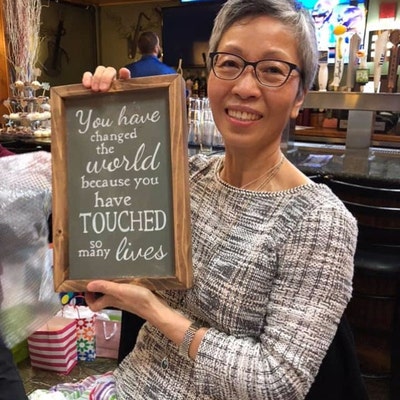 You have
changed
the
world
because you
have
TOUCHED
so
many lives